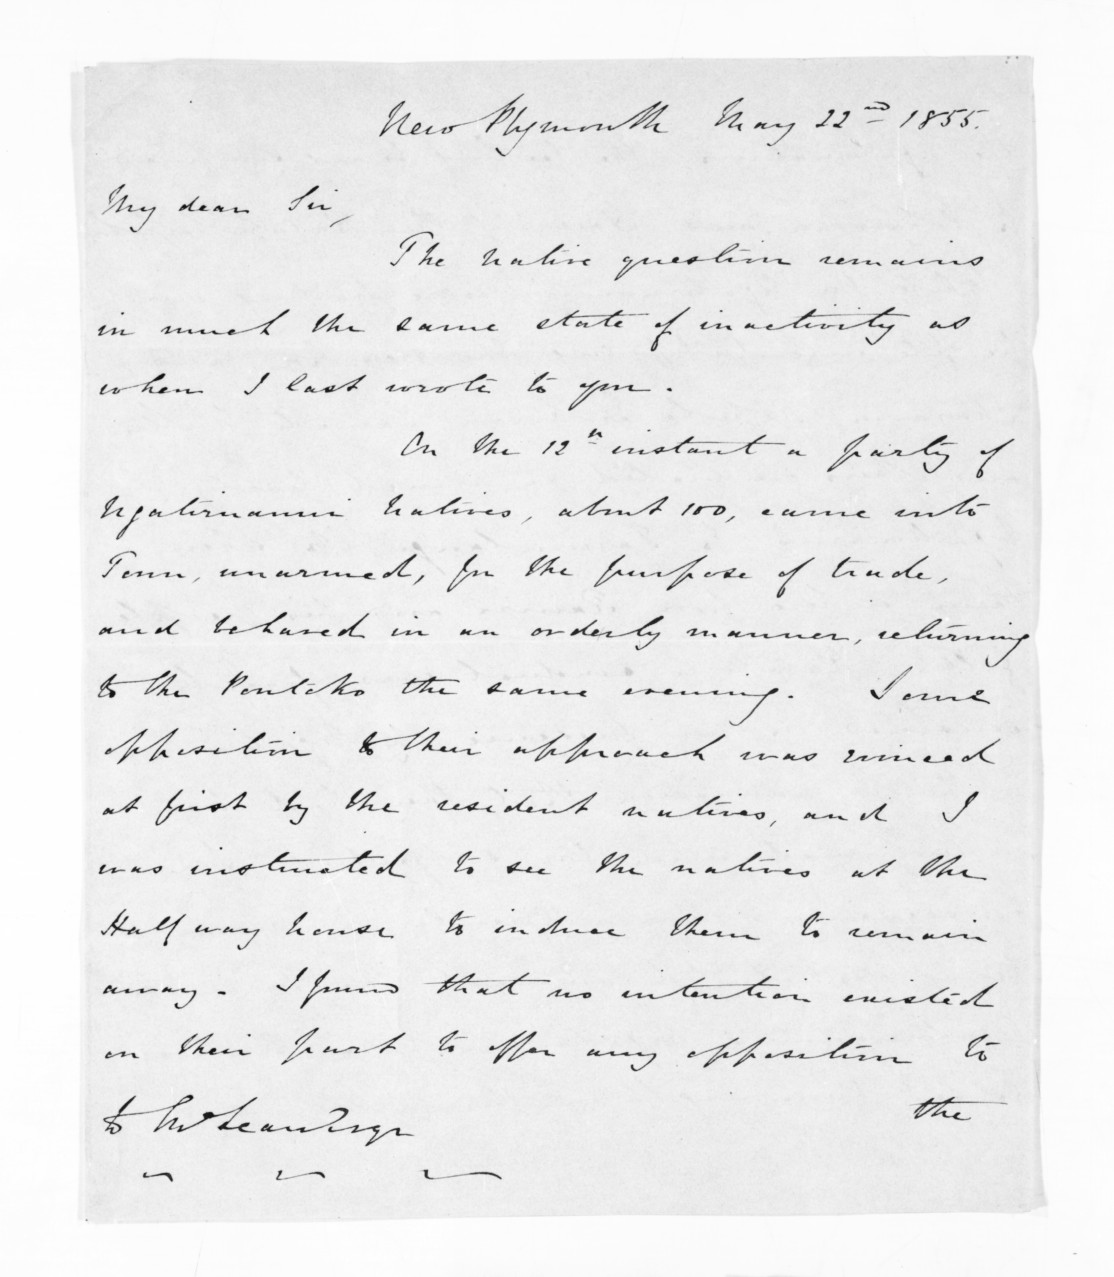 New Plymouth May 22nd 1855.
My dear Sir,
The native question remains
in much the same state of inactivity as
when I last wrote to you.
On the 12th instant a party of
Ngatiruanui Natives, about 100, came into
Town, unarmed, for the purpose of trade,
and behaved in an orderly manner, returning
to the Poutoko the same evening. Some
opposition to their approach was evinced
at first by the resident natives, and I
was instructed to see the natives at the
Half way house to induce them to remain
away. I found that no intention existed
on their part to offer any opposition to
the
to McLean Esqr